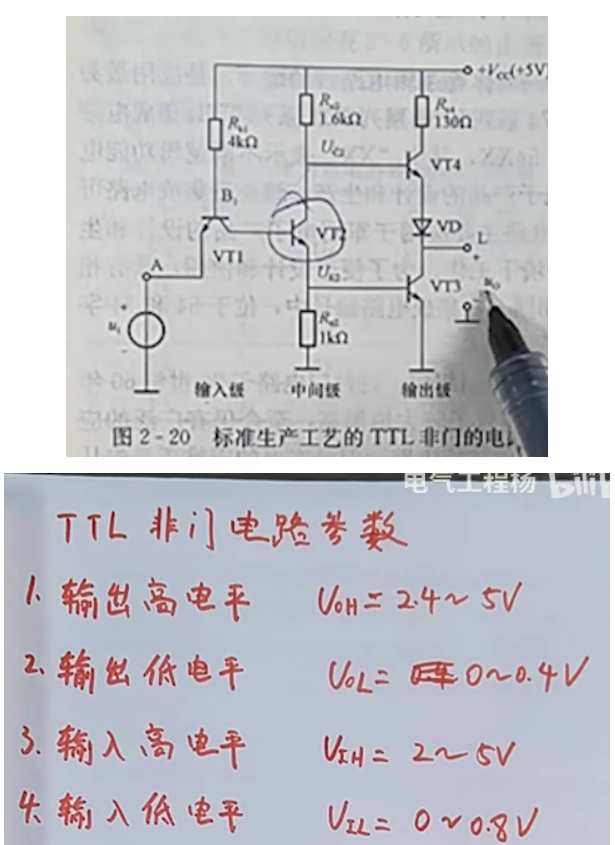 +Vcc(+5V)
Rb1
4kΩ
Rc2
1.6kΩ
Rc4
130Ω
Uc2
VT4
B1
VT2
VD
L
VT1
A
Ue2
VT3
uo
uI
Re2
1kΩ
输入级 中间级 输出级
图2-20 标准生产工艺的TTL非门的电
电气工程杨 bilibili
TTL 非门电路参数
1. 输出高电平 VOH = 2.4~5V
2. 输出低电平 VOL = 0~0.4V
3. 输入高电平 VIH = 2~5V
4. 输入低电平 VIL = 0~0.8V